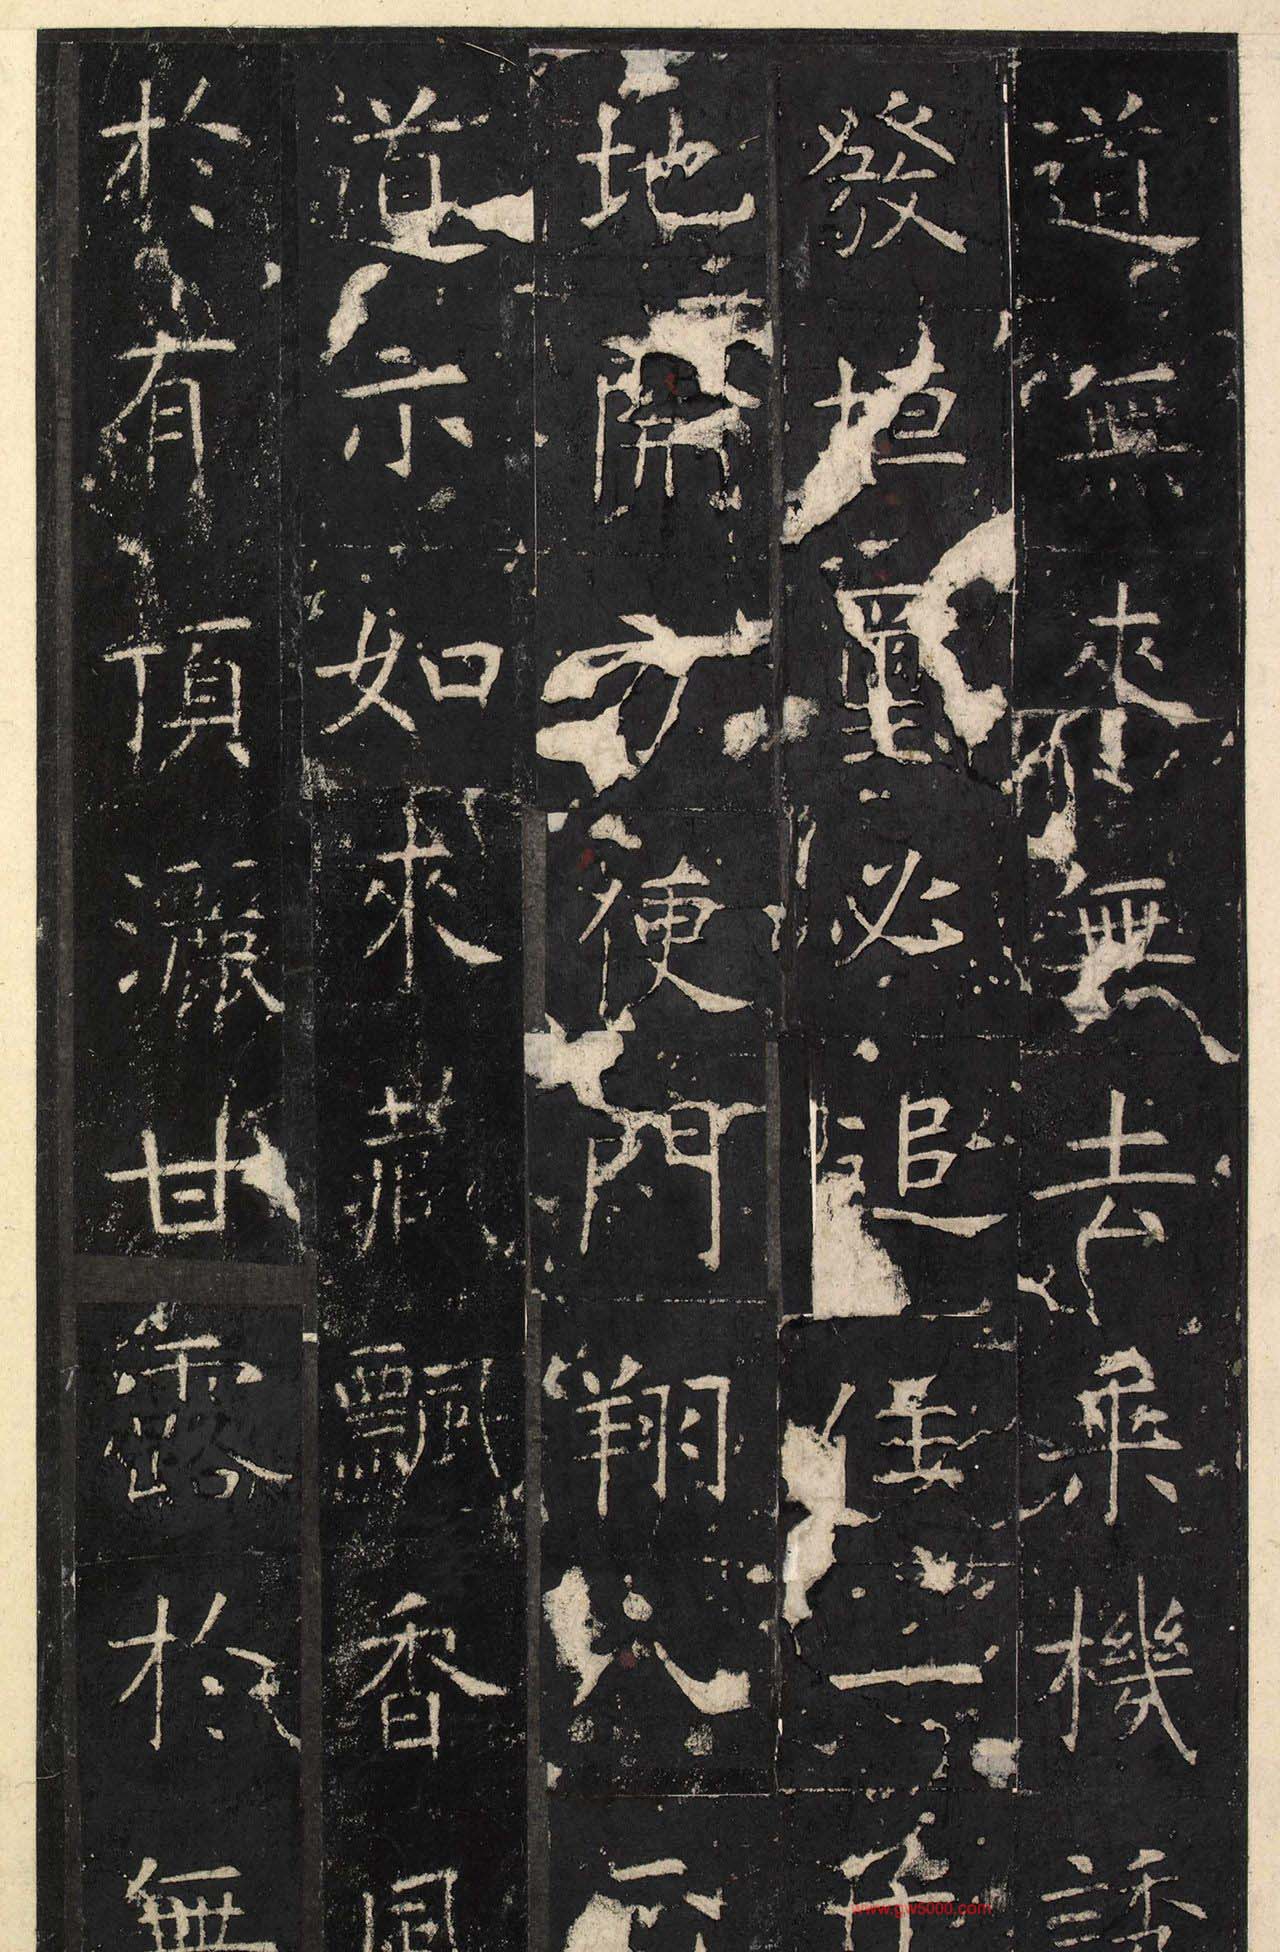 道無來無去乘機誘
發埴璽必追一
地開方便門翔八正
道示如來藏飄香風
於有頂灑甘露於無
www.gw5000.com